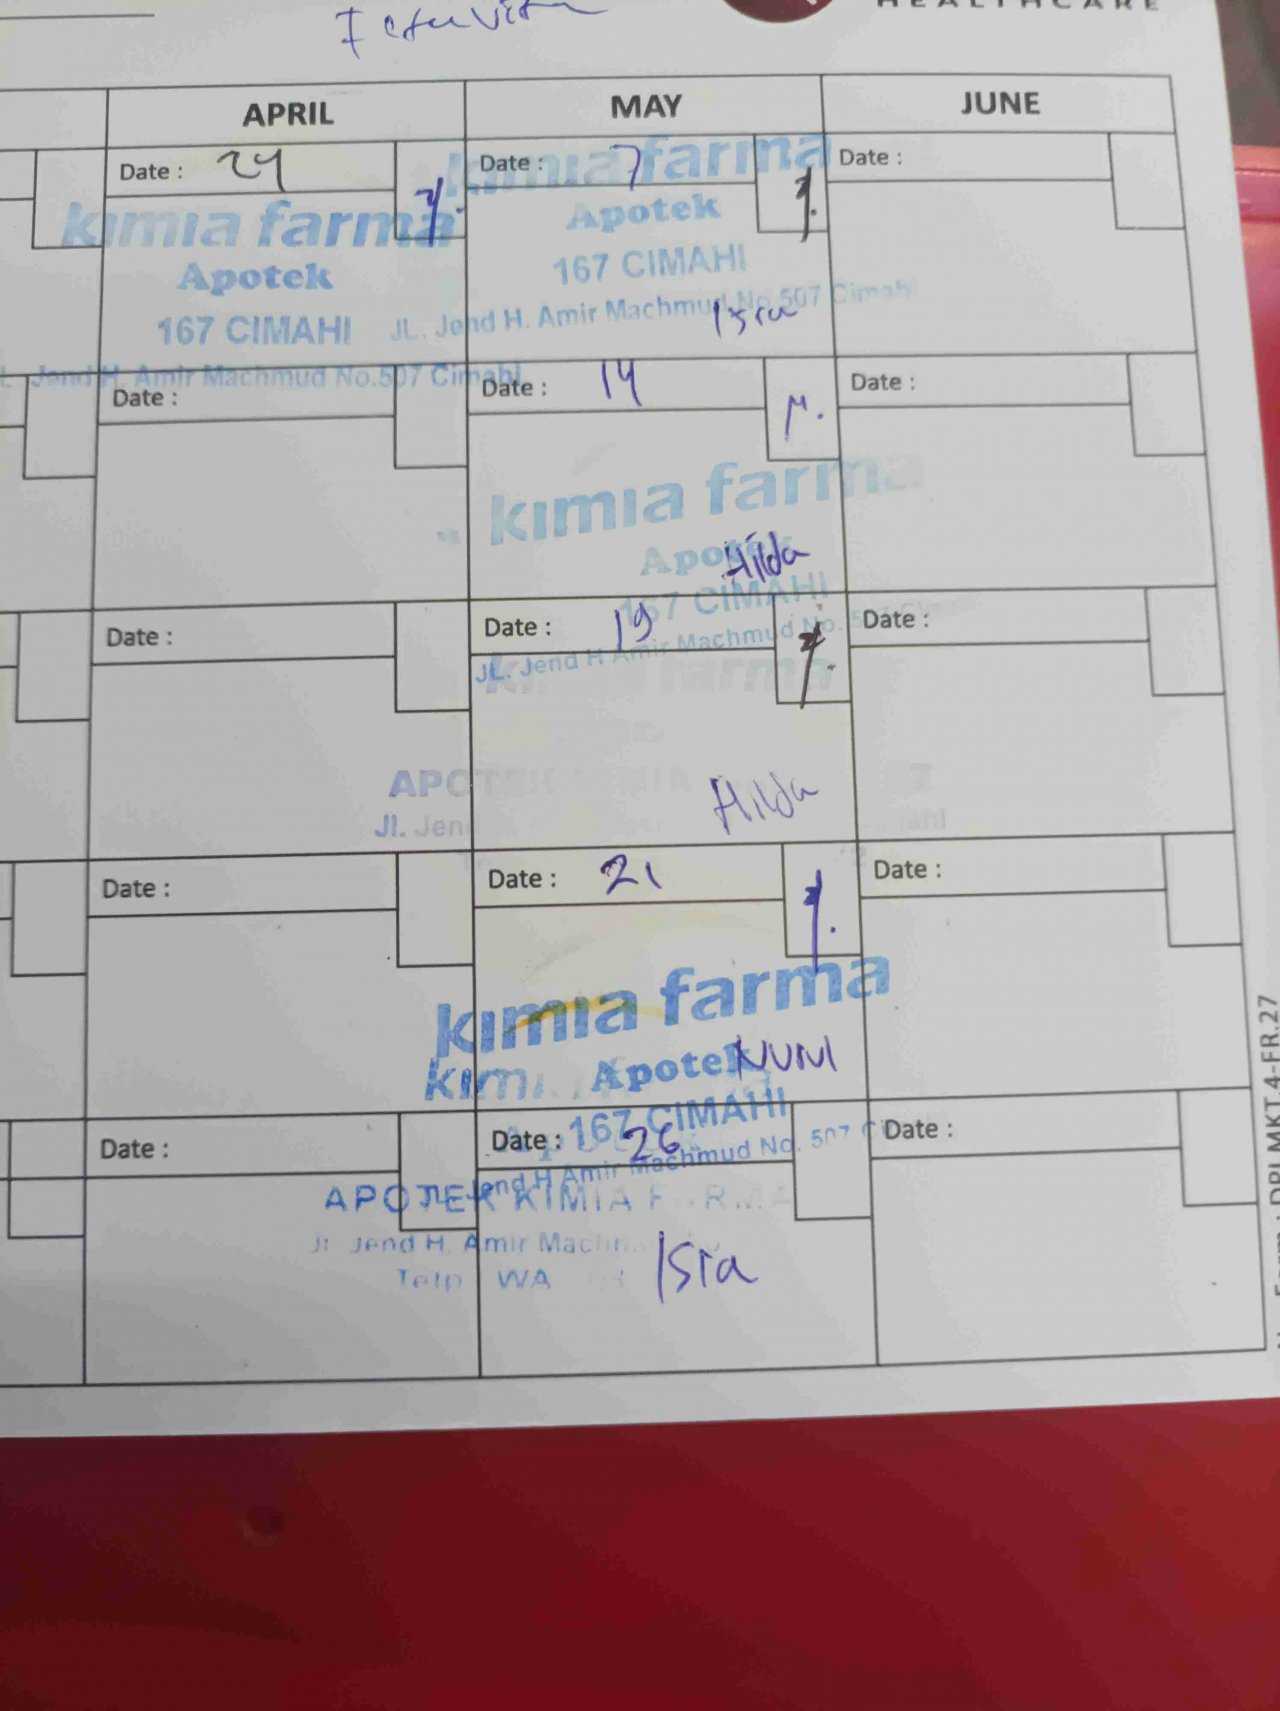 HEALTHCARE
APRIL MAY JUNE
Date : 24 Date : 7 Date :
kimia farma kimia farma
Apotek Apotek
167 CIMAHI 167 CIMAHI
JL. Jend H. Amir Machmud No.507 Cimahi
Isra
Jend H. Amir Machmud No.507 Cimahi
Date : Date : 14 Date :
kimia farma
Apotek
Hilda
167 CIMAHI
Date : Date : 19 Date :
JL. Jend H Amir Machmud No.
kimia farma
APOTEK
Jl. Jend
Hilda
Date : Date : 21 Date :
kimia farma
Apotek
NUNI
167 CIMAHI
Date : Date : 26 Date :
Jend H Amir Machmud No. 507
APOTEK KIMIA FARMA
Jl Jend H. Amir
Telp WA
Isra
MKT.4-FR.27